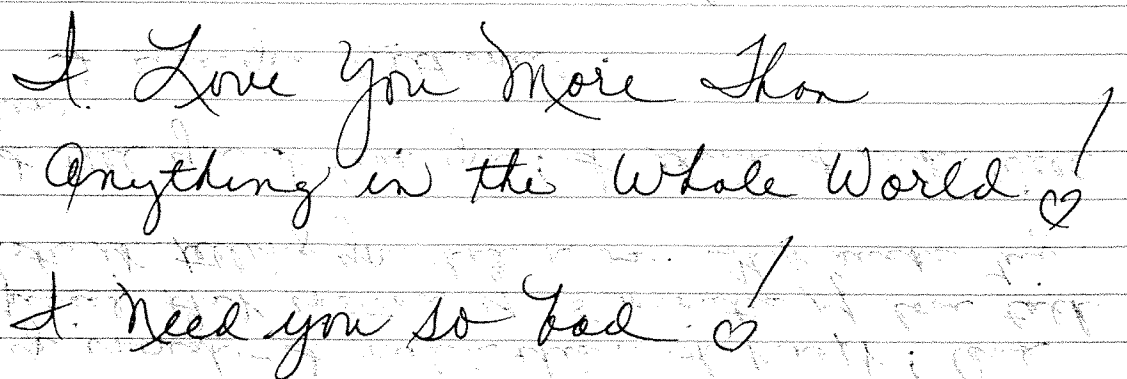 I. Love You More Than
Anything in the Whole World!
I. Need you so bad!